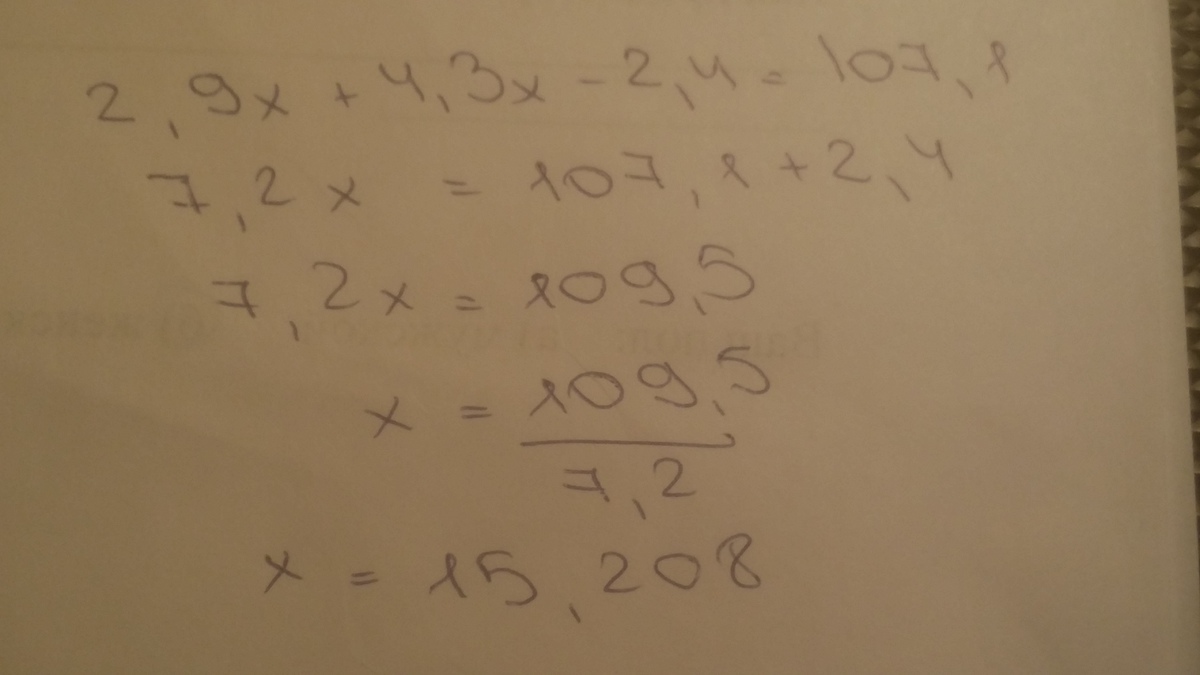 2,9x + 4,3x - 2,4 = 107,1
7,2x = 107,1 + 2,4
7,2x = 109,5
x = 109,5 / 7,2
x = 15,208